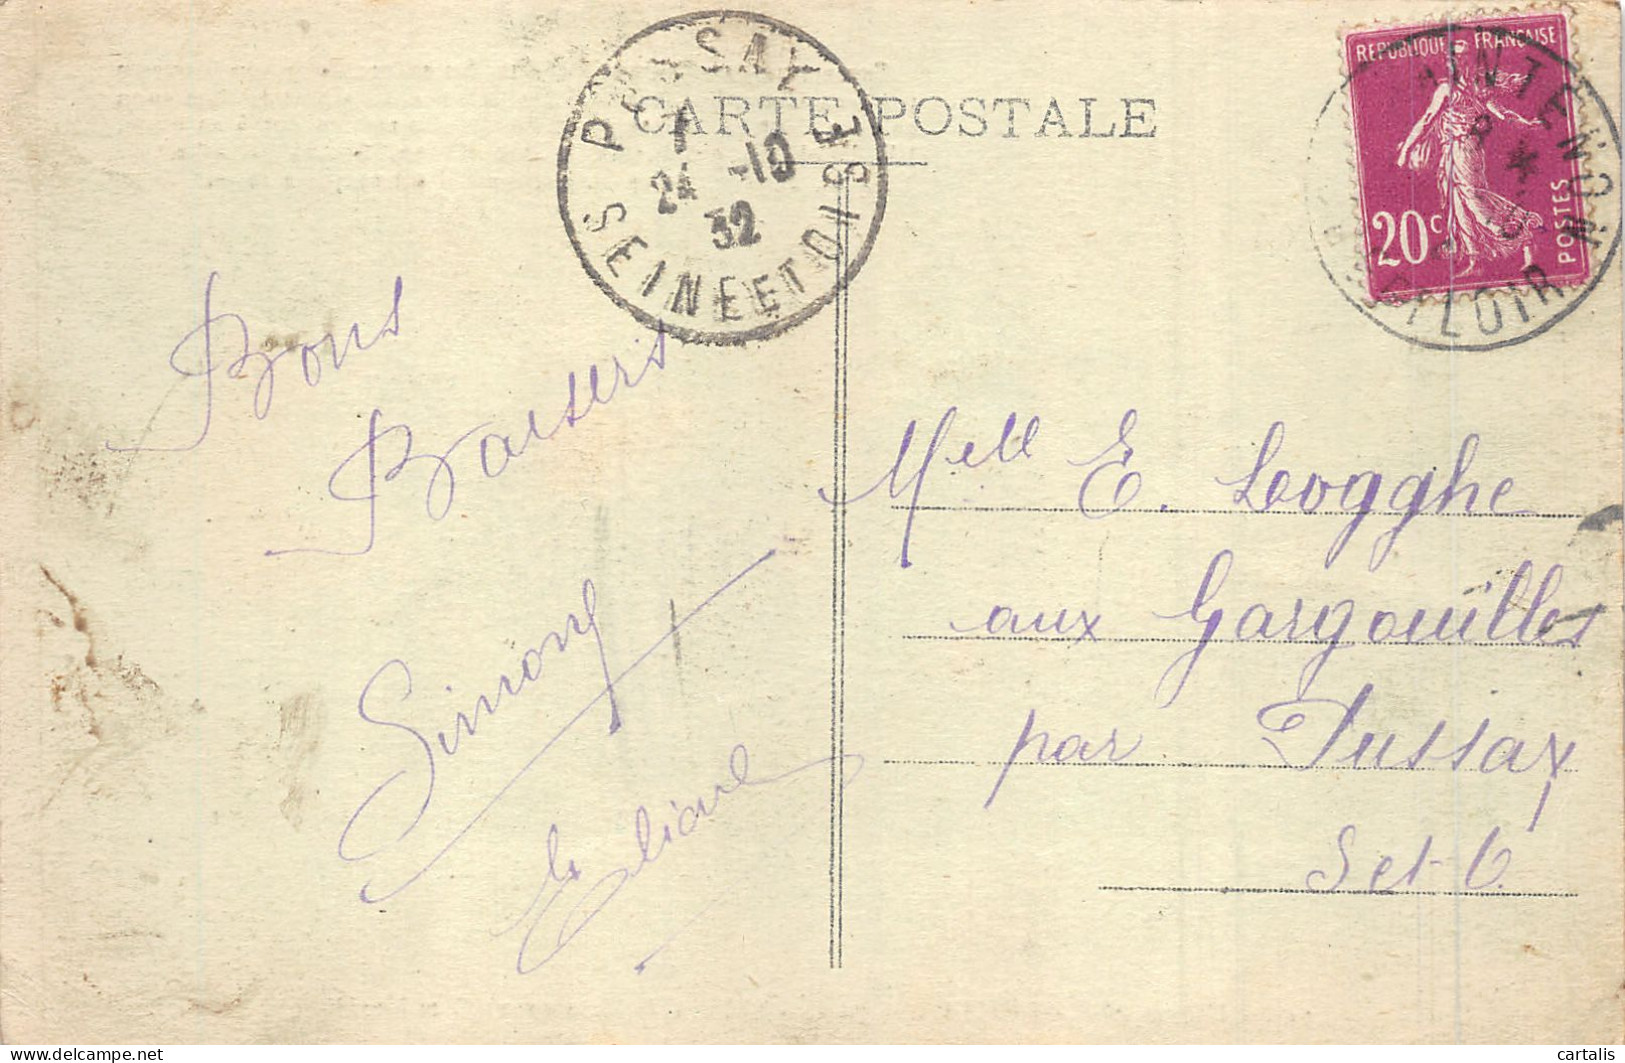 CARTE POSTALE
PUSSAY
24 -10
32
SEINE ET OISE
REPUBLIQUE FRANÇAISE
20c
POSTES
INTENON
LOIR
Bons
Baisers
Simone
et Eliane
Melle E. Logghe
aux Gargouilles
par Pussay
S et O.
cartalis